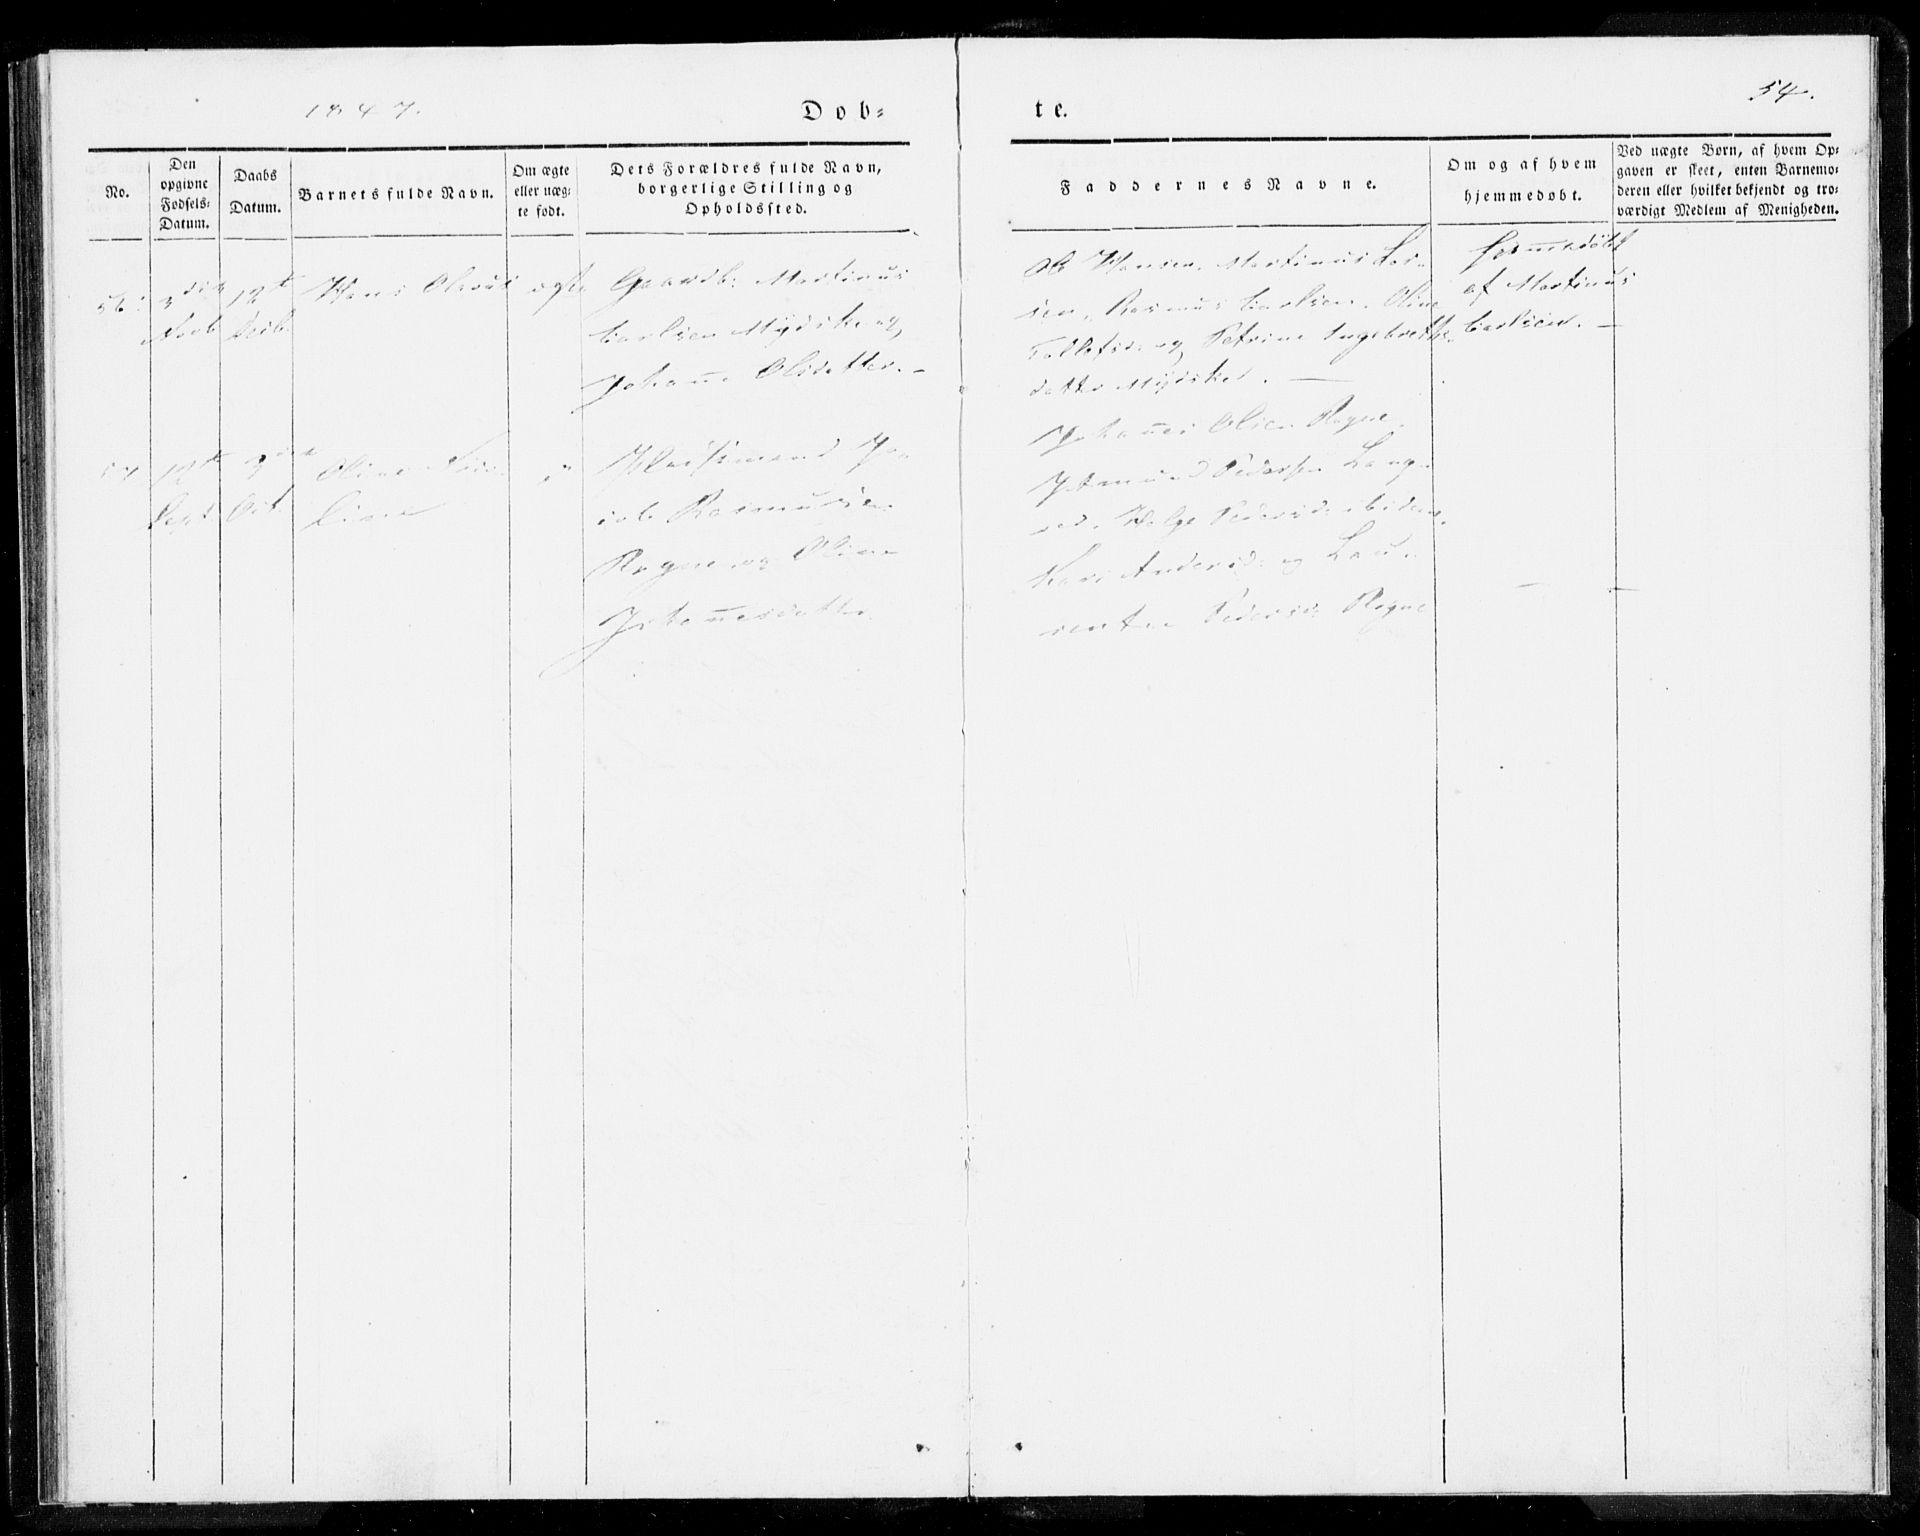 1847.
Dob-
te.
54.
No.
Den
opgivne
Fødsels-
Datum.
Daabs
Datum.
Barnets fulde Navn.
Om ægte
eller uæg-
te født.
Dets Forældres fulde Navn,
borgerlige Stilling og
Opholdssted.
Faddernes Navne.
Om og af hvem
hjemmedøbt.
Ved uægte Børn, af hvem Op-
gaven er skeet, enten Barnemo-
deren eller hvilket bekjendt og tro-
værdigt Medlem af Menigheden.
56.
Hans
ægte
Gaardb: Martinus
Carlsen Mydske og
Johanne Olsdatter. –
Ole Hansen, Martinus Lar-
sen, Rasmus Carlsen, Oline
og Petrine Ingebreths-
datter Mydske. —
hjemmedøbt
af Martinus
Carlsen. –
57
12te
Sept
Oct.
Oline
Jo-
Rasmussen
Rogne og Oline
Johannesdatter
Johannes Olsen Rogne,
Pedersen Lang-
Helge
Kari Andersd: og Lau-
Pedersd: Rogne